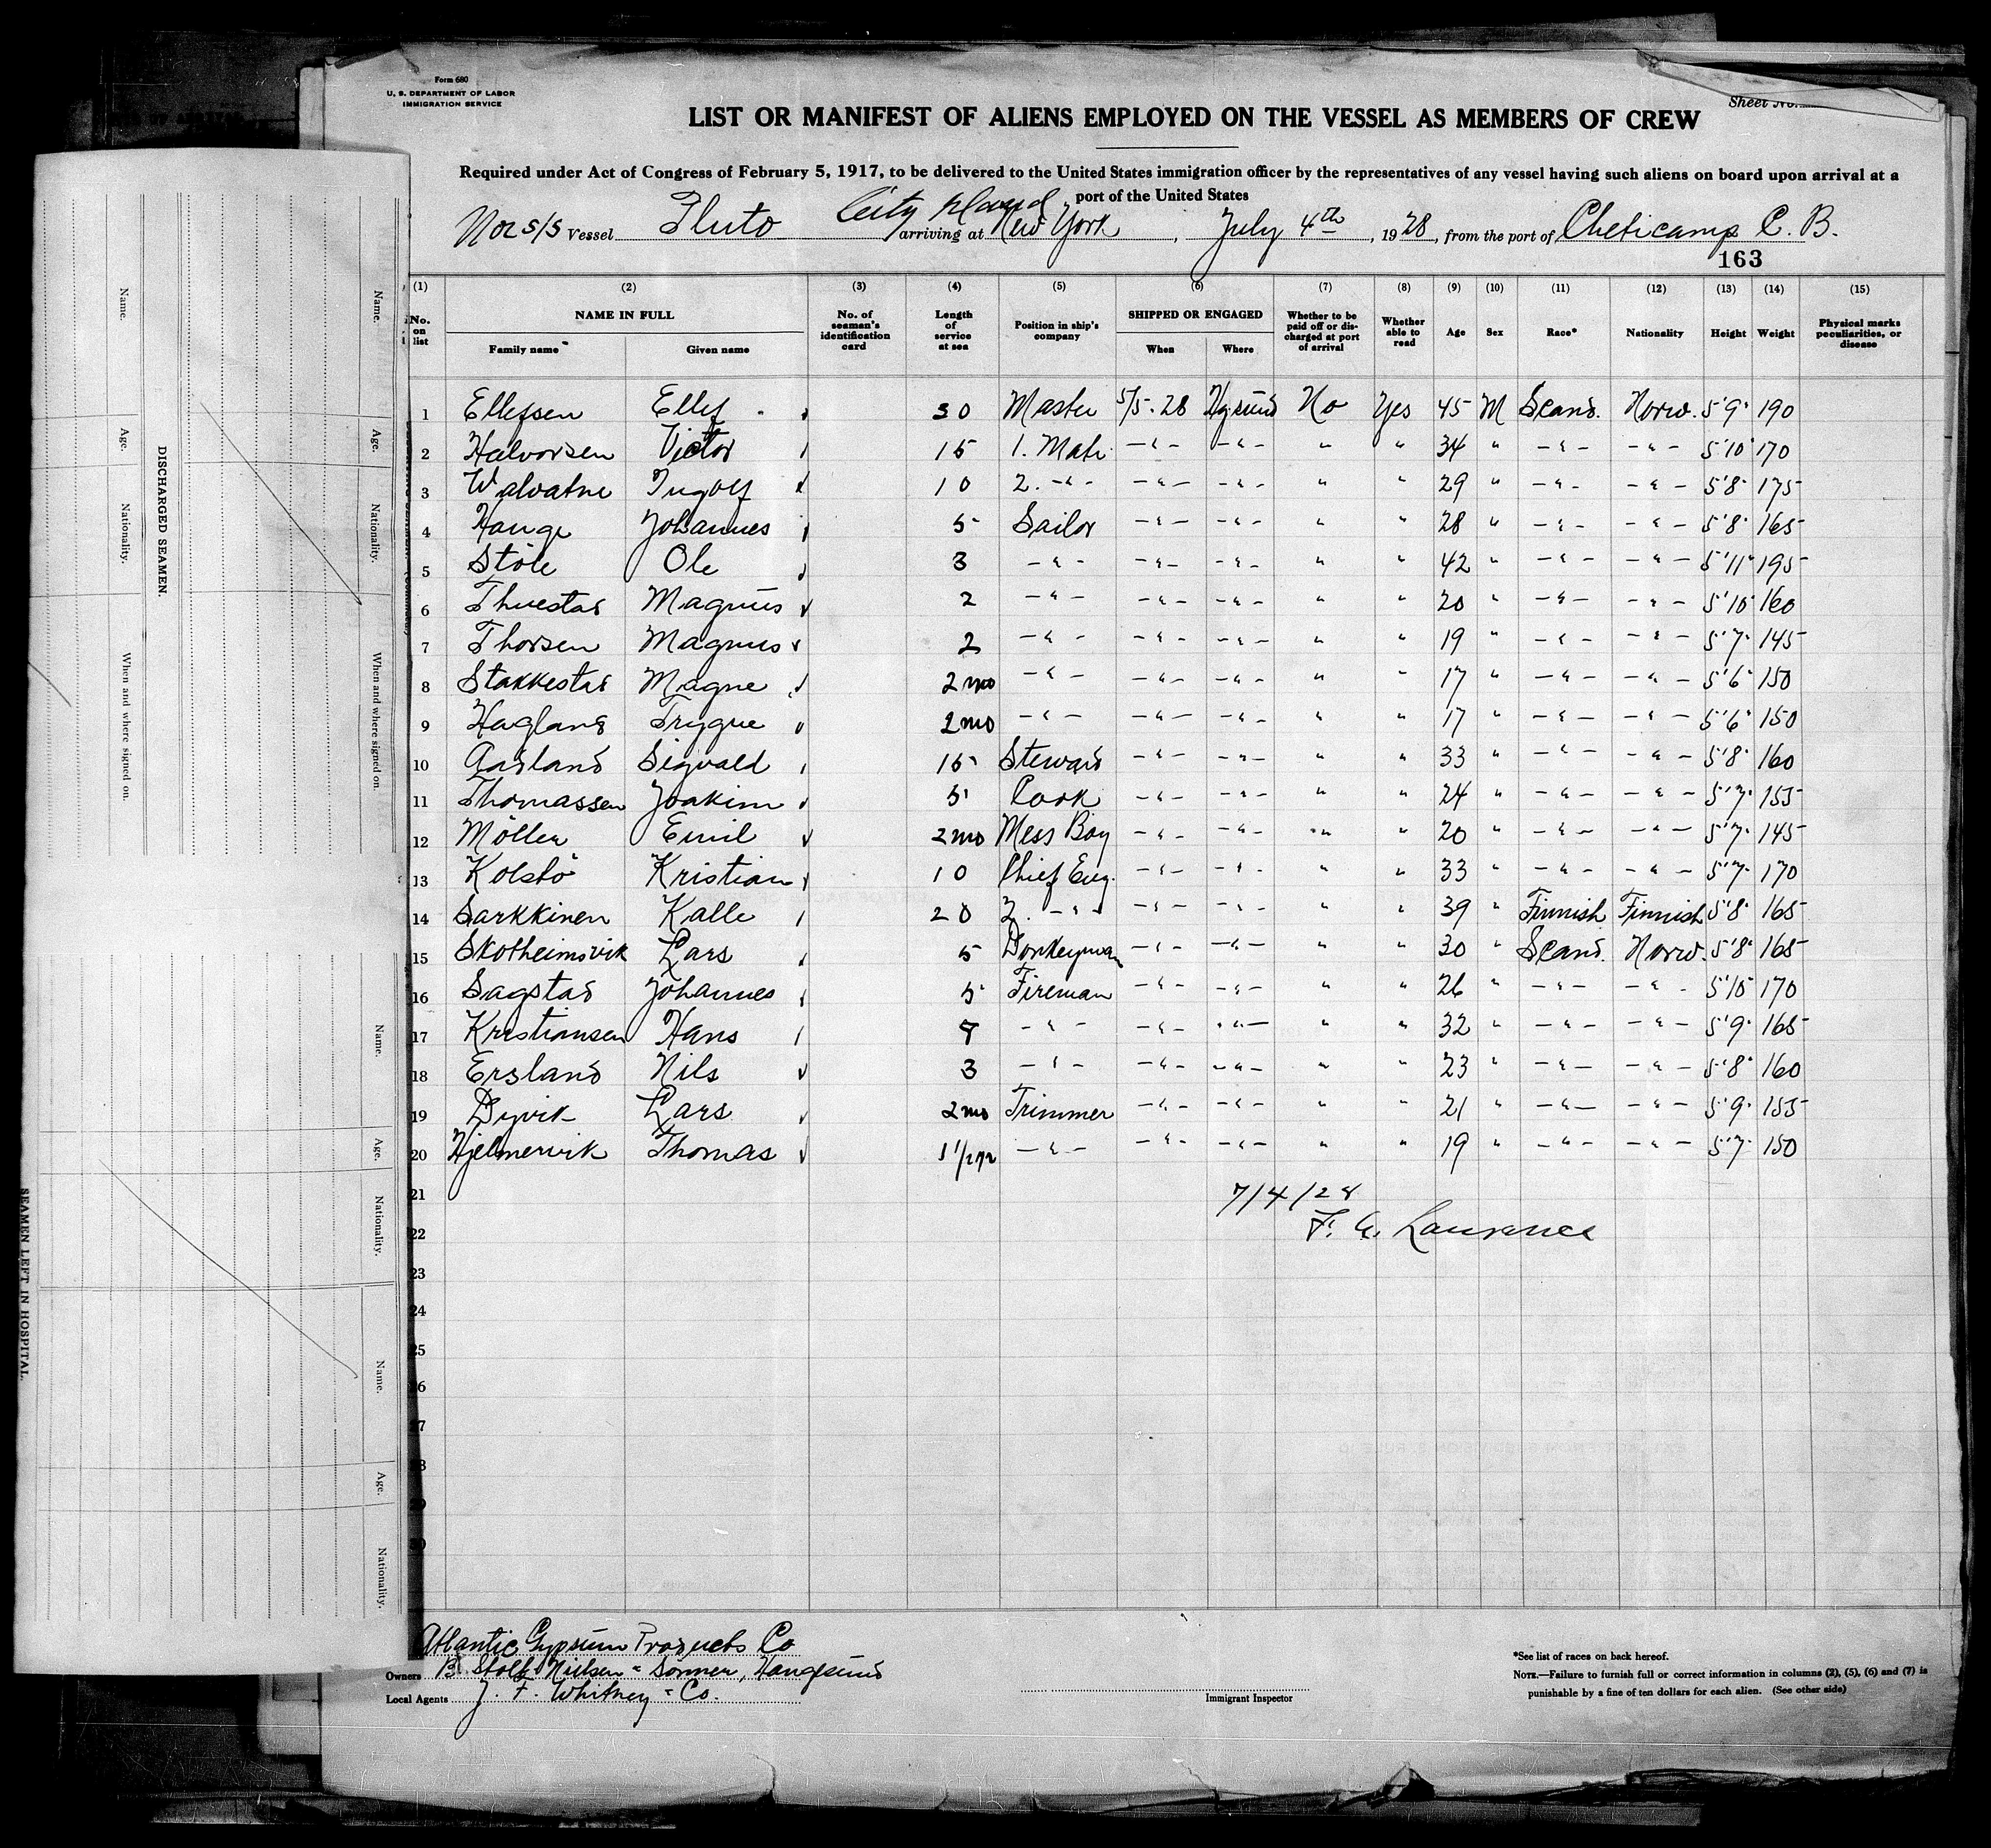 Form 680
U. S. DEPARTMENT OF LABOR
IMMIGRATION SERVICE
Sheet No.
LIST OR MANIFEST OF ALIENS EMPLOYED ON THE VESSEL AS MEMBERS OF CREW
Required under Act of Congress of February 5, 1917, to be delivered to the United States immigration officer by the representatives of any vessel having such aliens on board upon arrival at a
port of the United States
Nor S/S Vessel Pluto arriving at City Island New York, July 4th, 1928, from the port of Cheticamp C. B.
163
(1) (2) (3) (4) (5) (6) (7) (8) (9) (10) (11) (12) (13) (14) (15)
No. on list NAME IN FULL No. of seaman's identification card Length of service at sea Position in ship's company SHIPPED OR ENGAGED Whether to be paid off or discharged at port of arrival Whether able to read Age Sex Race* Nationality Height Weight Physical marks peculiarities, or disease
Family name Given name When Where
1 Ellefsen Ellef 30 Master 5/5-28 No Yes 45 M Scand. Norw. 5'9" 190
2 Halvorsen Victor 15 1. Mate -"- -"- " " 34 " -"- -"- 5'10" 170
3 Walvatne Ingolf 10 2. -"- -"- -"- " " 29 " -"- -"- 5'8" 175
4 Hauge Johannes 5 Sailor -"- -"- " " 28 " -"- -"- 5'8" 165
5 Stöle Ole 3 -"- -"- -"- " " 42 " -"- -"- 5'11" 195
6 Thuestad Magnus 2 -"- -"- -"- " " 20 " -"- -"- 5'10" 160
7 Thorsen Magnus 2 -"- -"- -"- " " 19 " -"- -"- 5'7" 145
8 Stakkestad Magne 2 mo -"- -"- -"- " " 17 " -"- -"- 5'6" 150
9 Hagland Trygve 2 mo -"- -"- -"- " " 17 " -"- -"- 5'6" 150
10 Aasland Sigvald 15 Steward -"- -"- " " 33 " -"- -"- 5'8" 160
11 Thomassen Joakim 5 Cook -"- -"- " " 24 " -"- -"- 5'7" 155
12 Möller Emil 2 mo Mess Boy -"- -"- " " 20 " -"- -"- 5'7" 145
13 Kolstö Kristian 10 Chief Eng. -"- -"- " " 33 " -"- -"- 5'7" 170
14 Sarkkinen Kalle 20 2. -"- -"- -"- " " 39 " Finnish Finnish 5'8" 165
15 Skotheimsvik Lars 5 Donkeyman -"- -"- " " 30 " Scand. Norw. 5'8" 165
16 Sagstad Johannes 5 Fireman -"- -"- " " 26 " -"- -"- 5'10" 170
17 Kristiansen Hans 8 -"- -"- -"- " " 32 " -"- -"- 5'9" 165
18 Ersland Nils 3 -"- -"- -"- " " 23 " -"- -"- 5'8" 160
19 Dyvik Lars 2 mo Trimmer -"- -"- " " 21 " -"- -"- 5'9" 155
20 Hjelmervik Thomas 1 1/2 yr -"- -"- -"- " " 19 " -"- -"- 5'7" 150
21 7/4/28
22 F. A. Laurence
23
24
25
26
27
28
29
30
Atlantic Gypsum Products Co
Owners B. Stolt Nielsen " Sönner, Haugesund
Local Agents J. F. Whitney " Co.
Immigrant Inspector
*See list of races on back hereof.
NOTE.—Failure to furnish full or correct information in columns (2), (5), (6) and (7) is
punishable by a fine of ten dollars for each alien. (See other side)
DISCHARGED SEAMEN.
Name. Age. Nationality. When and where signed on.
Name. Age. Nationality. When and where signed on.
SEAMEN LEFT IN HOSPITAL.
Name. Age. Nationality.
Name. Age. Nationality.